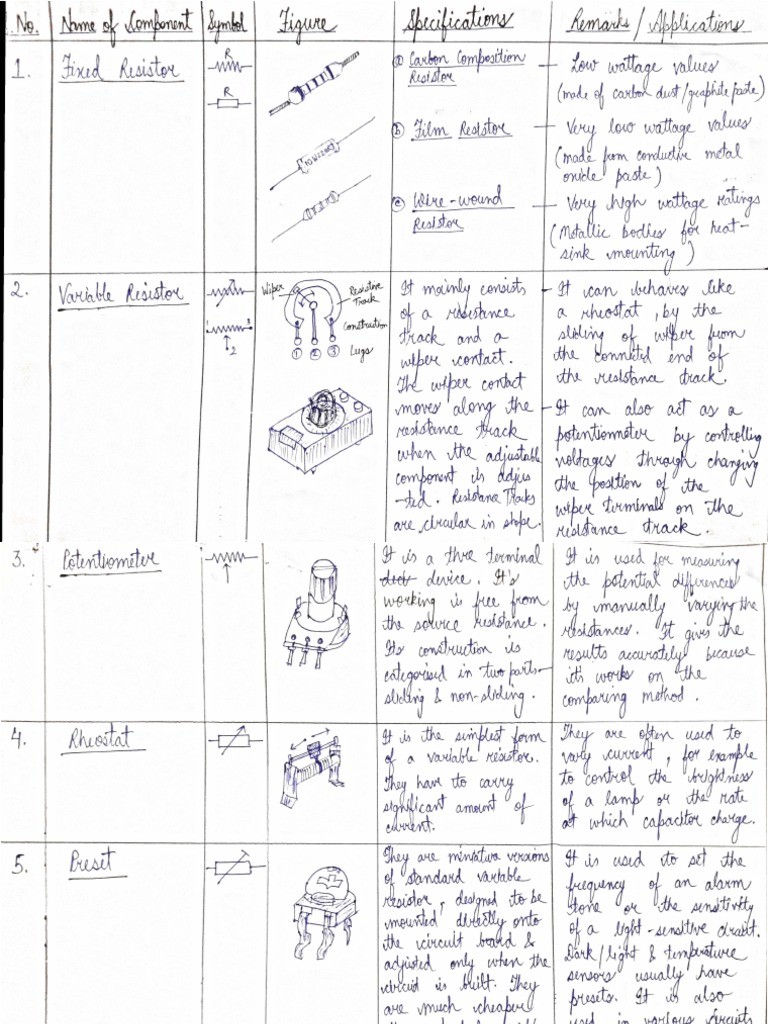 No. Name of Component Symbol Figure Specifications Remarks / Applications
1. Fixed Resistor
R
R
10W22Ω
ⓐ Carbon Composition
Resistor
— Low wattage values
(made of carbon dust/graphite paste)
ⓑ Film Resistor
— Very low wattage values
(made from conductive metal
oxide paste)
ⓒ Wire-wound
Resistor
— Very high wattage ratings
(Metallic bodies for heat-
sink mounting)
2. Variable Resistor
2
Wiper
Resistive
Track
Construction
① ② ③ Lugs
It mainly consists
of a resistance
track and a
wiper contact.
The wiper contact
moves along the
resistance track
when the adjustable
component is adjus
-ted. Resistance Tracks
are circular in shape.
— It can behaves like
a rheostat, by the
sliding of wiper from
the connected end of
the resistance track.
— It can also act as a
potentiometer by controlling
voltages through changing
the position of the
wiper terminals on the
resistance track.
3. Potentiometer
It is a three terminal
device. It's
working is free from
the source resistance.
Its construction is
categorised in two parts—
sliding & non-sliding.
It is used for measuring
the potential differences
by manually varying the
resistances. It gives the
results accurately because
it's works on the
comparing method.
4. Rheostat
It is the simplest form
of a variable resistor.
They have to carry
significant amount of
current.
They are often used to
vary current, for example
to control the brightness
of a lamp or the rate
at which capacitor charge.
5. Preset
They are miniature versions
of standard variable
resistor, designed to be
mounted directly onto
the circuit board &
adjusted only when the
circuit is built. They
are much cheaper
It is used to set the
frequency of an alarm
tone or the sensitivity
of a light-sensitive circuit.
Dark/light & temperature
sensors usually have
presets. It is also
used in various circuits